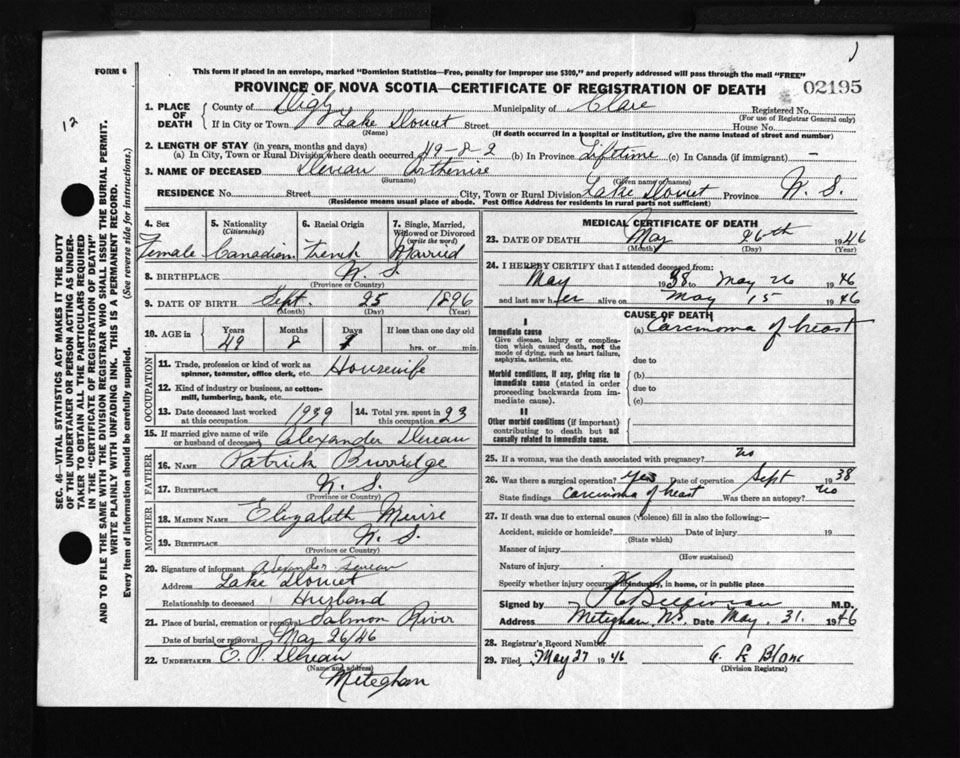 FORM 6
This form if placed in an envelope, marked "Dominion Statistics—Free, penalty for improper use $300," and properly addressed will pass through the mail "FREE"
PROVINCE OF NOVA SCOTIA—CERTIFICATE OF REGISTRATION OF DEATH
02195
12
SEC. 46—VITAL STATISTICS ACT MAKES IT THE DUTY
OF THE UNDERTAKER OR PERSON ACTING AS UNDER-
TAKER TO OBTAIN ALL THE PARTICULARS REQUIRED
IN THE "CERTIFICATE OF REGISTRATION OF DEATH"
AND TO FILE THE SAME WITH THE DIVISION REGISTRAR WHO SHALL ISSUE THE BURIAL PERMIT.
WRITE PLAINLY WITH UNFADING INK. THIS IS A PERMANENT RECORD.
Every item of information should be carefully supplied. (See reverse side for instructions.)
1. PLACE OF DEATH County of Digby Municipality of Clare Registered No.
(For use of Registrar General only)
If in City or Town Lake Doucet Street House No.
(Name) (If death occurred in a hospital or institution, give the name instead of street and number)
2. LENGTH OF STAY (in years, months and days)
(a) In City, Town or Rural Division where death occurred 49-8-2 (b) In Province Lifetime (c) In Canada (if immigrant) —
3. NAME OF DECEASED Deveau Arthenise
(Surname) (Given name or names)
RESIDENCE No. Street City, Town or Rural Division Lake Doucet Province N. S.
(Residence means usual place of abode. Post Office Address for residents in rural parts not sufficient)
4. Sex Female
5. Nationality (Citizenship) Canadian
6. Racial Origin French
7. Single, Married, Widowed or Divorced (write the word) Married
8. BIRTHPLACE N. S.
(Province or Country)
9. DATE OF BIRTH Sept. 25 1896
(Month) (Day) (Year)
10. AGE in Years 49 Months 8 Days 1 If less than one day old hrs. or min.
OCCUPATION
11. Trade, profession or kind of work as spinner, teamster, office clerk, etc. Housewife
12. Kind of industry or business, as cotton-mill, lumbering, bank, etc.
13. Date deceased last worked at this occupation 1939 14. Total yrs. spent in this occupation 23
15. If married give name of wife or husband of deceased Alexander Deveau
FATHER
16. NAME Patrick Burridge
17. BIRTHPLACE N. S.
(Province or Country)
MOTHER
18. MAIDEN NAME Elizabeth Muise
19. BIRTHPLACE N. S.
(Province or Country)
20. Signature of informant Alexander Deveau
Address Lake Doucet
Relationship to deceased Husband
21. Place of burial, cremation or removal Salmon River
Date of burial or removal May 26/46
22. UNDERTAKER E. P. Deveau
(Name and address)
Meteghan
MEDICAL CERTIFICATE OF DEATH
23. DATE OF DEATH May 26th 1946
(Month) (Day) (Year)
24. I HEREBY CERTIFY that I attended deceased from:
May 1938 to May 26 1946
and last saw her alive on May 15 1946
CAUSE OF DEATH
I
Immediate cause
Give disease, injury or complication which caused death, not the mode of dying, such as heart failure, asphyxia, asthenia, etc.
(a) Carcinoma of breast
due to
Morbid conditions, if any, giving rise to immediate cause (stated in order proceeding backwards from immediate cause).
(b)
due to
(c)
II
Other morbid conditions (if important) contributing to death but not causally related to immediate cause.
25. If a woman, was the death associated with pregnancy? no
26. Was there a surgical operation? yes Date of operation Sept 1938
State findings Carcinoma of breast Was there an autopsy? no
27. If death was due to external causes (violence) fill in also the following:—
Accident, suicide or homicide? Date of injury 19
(State which)
Manner of injury
(How sustained)
Nature of injury
Specify whether injury occurred in industry, in home, or in public place
Signed by M.D.
Address Meteghan, N.S. Date May. 31. 1946
28. Registrar's Record Number
29. Filed, May 27 1946
(Division Registrar)